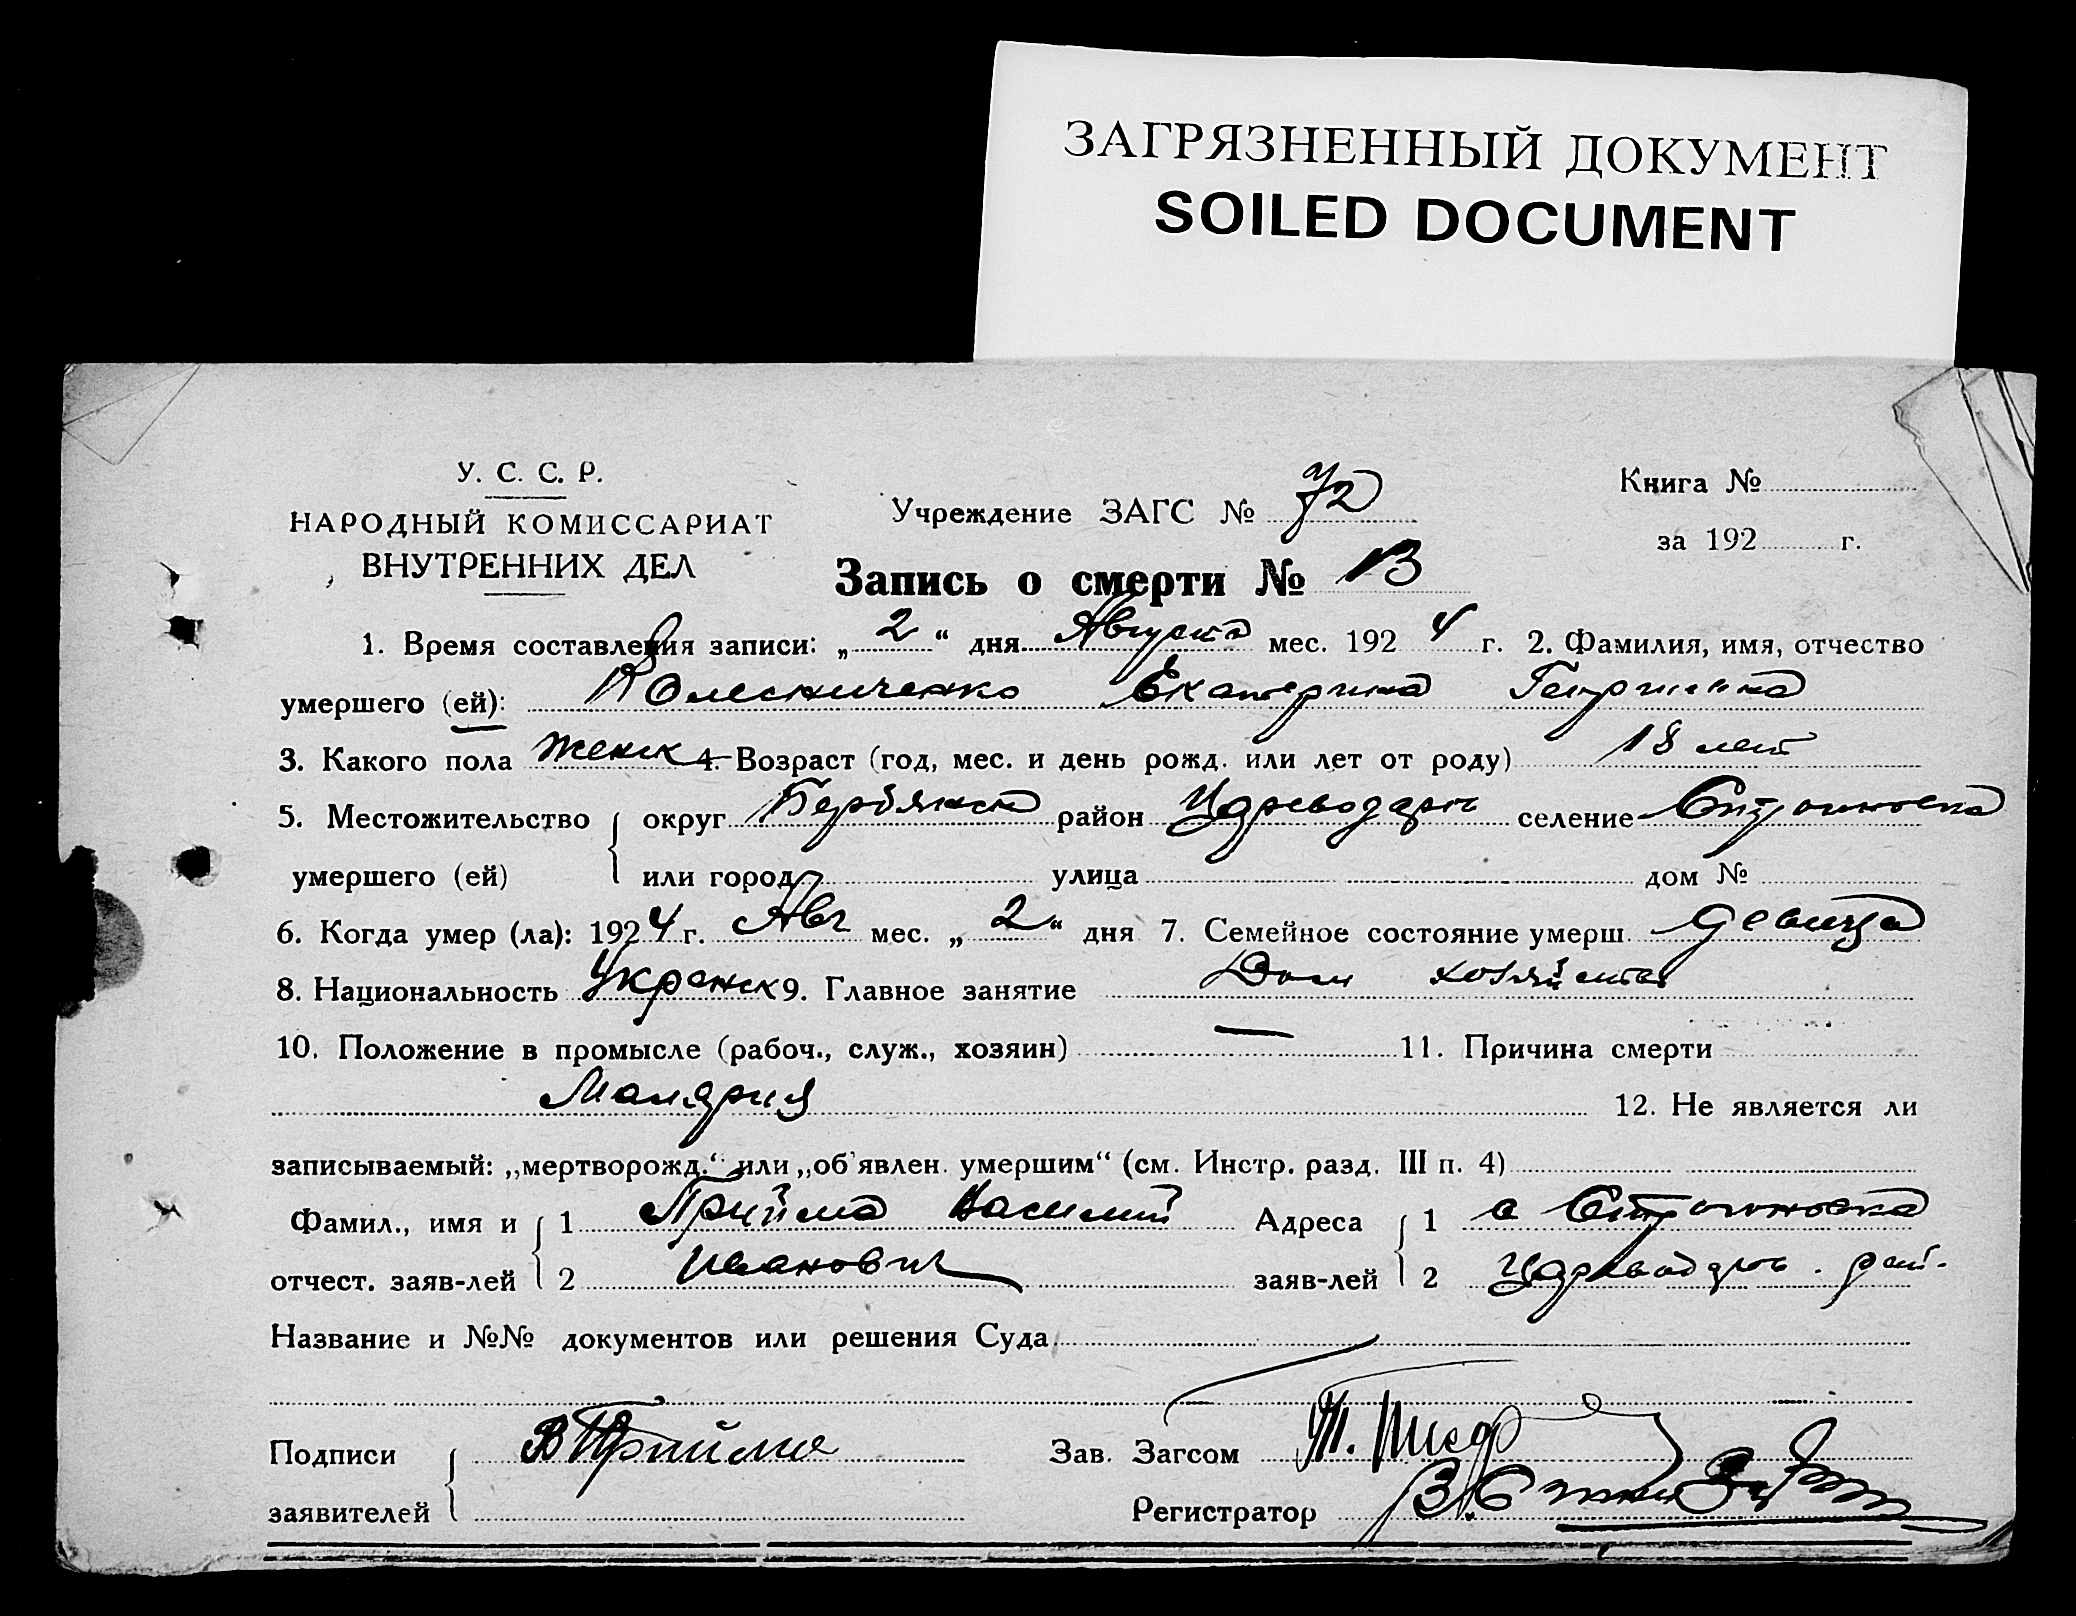 ЗАГРЯЗНЕННЫЙ ДОКУМЕНТ
SOILED DOCUMENT
У. С. С. Р.
НАРОДНЫЙ КОМИССАРИАТ
ВНУТРЕННИХ ДЕЛ
Учреждение ЗАГС № 72
Книга №
за 192 г.
Запись о смерти № 13
1. Время составления записи: „2“ дня Августа мес. 1924 г. 2. Фамилия, имя, отчество
умершего (ей): Колесниченко Екатерина
3. Какого пола женск 4. Возраст (год, мес. и день рожд. или лет от роду) 18 лет
5. Местожительство умершего (ей) { округ Бердянск район Цареводарь селение Строгоновка
или город улица дом №
6. Когда умер (ла): 1924 г. Авг мес. „2“ дня 7. Семейное состояние умерш. девица
8. Национальность 9. Главное занятие Дом хозяйства
10. Положение в промысле (рабоч., служ., хозяин) — 11. Причина смерти
Малярия 12. Не является ли
записываемый: „мертворожд.“ или „об'явлен. умершим“ (см. Инстр. разд. III п. 4)
Фамил., имя и { 1 Прийма Василий Адреса { 1 с Строгоновка
отчест. заяв-лей { 2 Иванович заяв-лей { 2 рай.
Название и №№ документов или решения Суда
Подписи { В Прийма Зав. Загсом
заявителей Регистратор